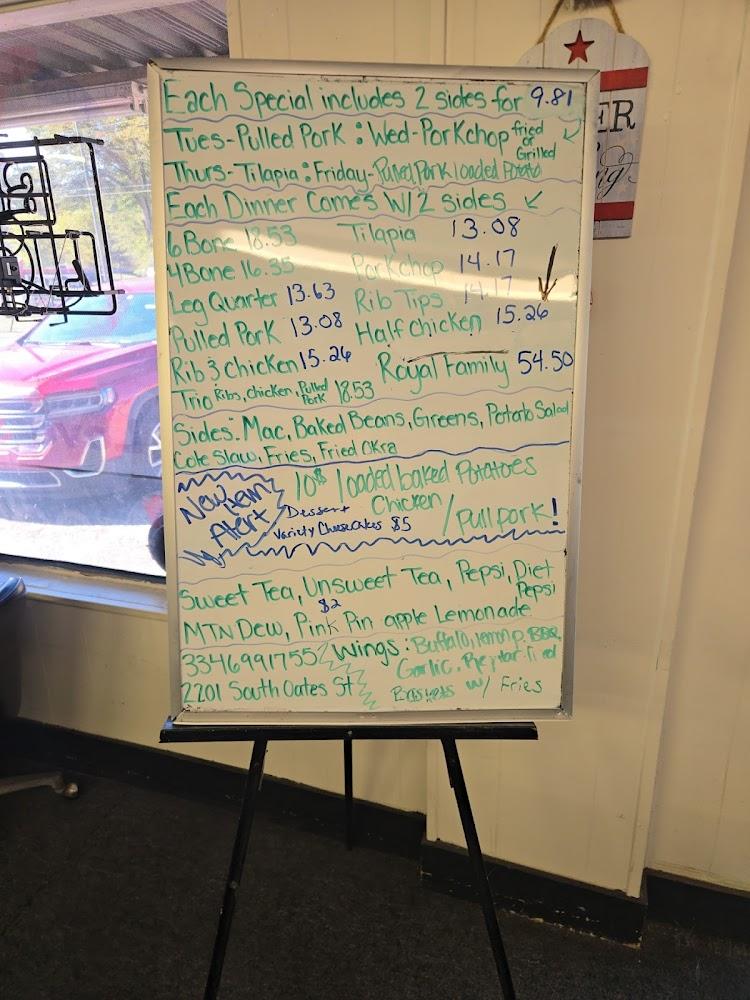 Each Special includes 2 sides for 9.81
Tues-Pulled Pork : Wed-Porkchop fried or Grilled
Thurs-Tilapia : Friday-Pulled Pork loaded Potato
Each Dinner Comes W/2 sides
6 Bone 18.53 Tilapia 13.08
4 Bone 16.35 Porkchop 14.17
Leg Quarter 13.63 Rib Tips 14.17
Pulled Pork 13.08 Half Chicken 15.26
Rib 3 chicken 15.26 Royal Family 54.50
Trio Ribs, chicken, Pulled Pork 18.53
Sides: Mac, Baked Beans, Greens, Potato Salad
Cole Slaw, Fries, Fried Okra
New item Alert
10$ loaded baked Potatoes
Chicken / Pull pork!
Dessert
Variety Cheesecakes $5
Sweet Tea, Unsweet Tea, Pepsi, Diet Pepsi
$2
MTN Dew, Pink Pin apple Lemonade
3346991755 Wings: Buffalo, lemon p. BBQ,
Garlic. Regular fried
2201 South Oates St Baskets w/ Fries
ER